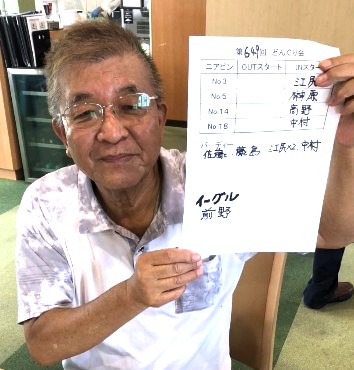 第649回 どんぐり会
ニアピン OUTスタート INスタート
No.3 江尻
No.5 榊原
No.14 高野
No.18 中村
バーディー
佐藤 藤島 江尻×2 中村
イーグル
前野